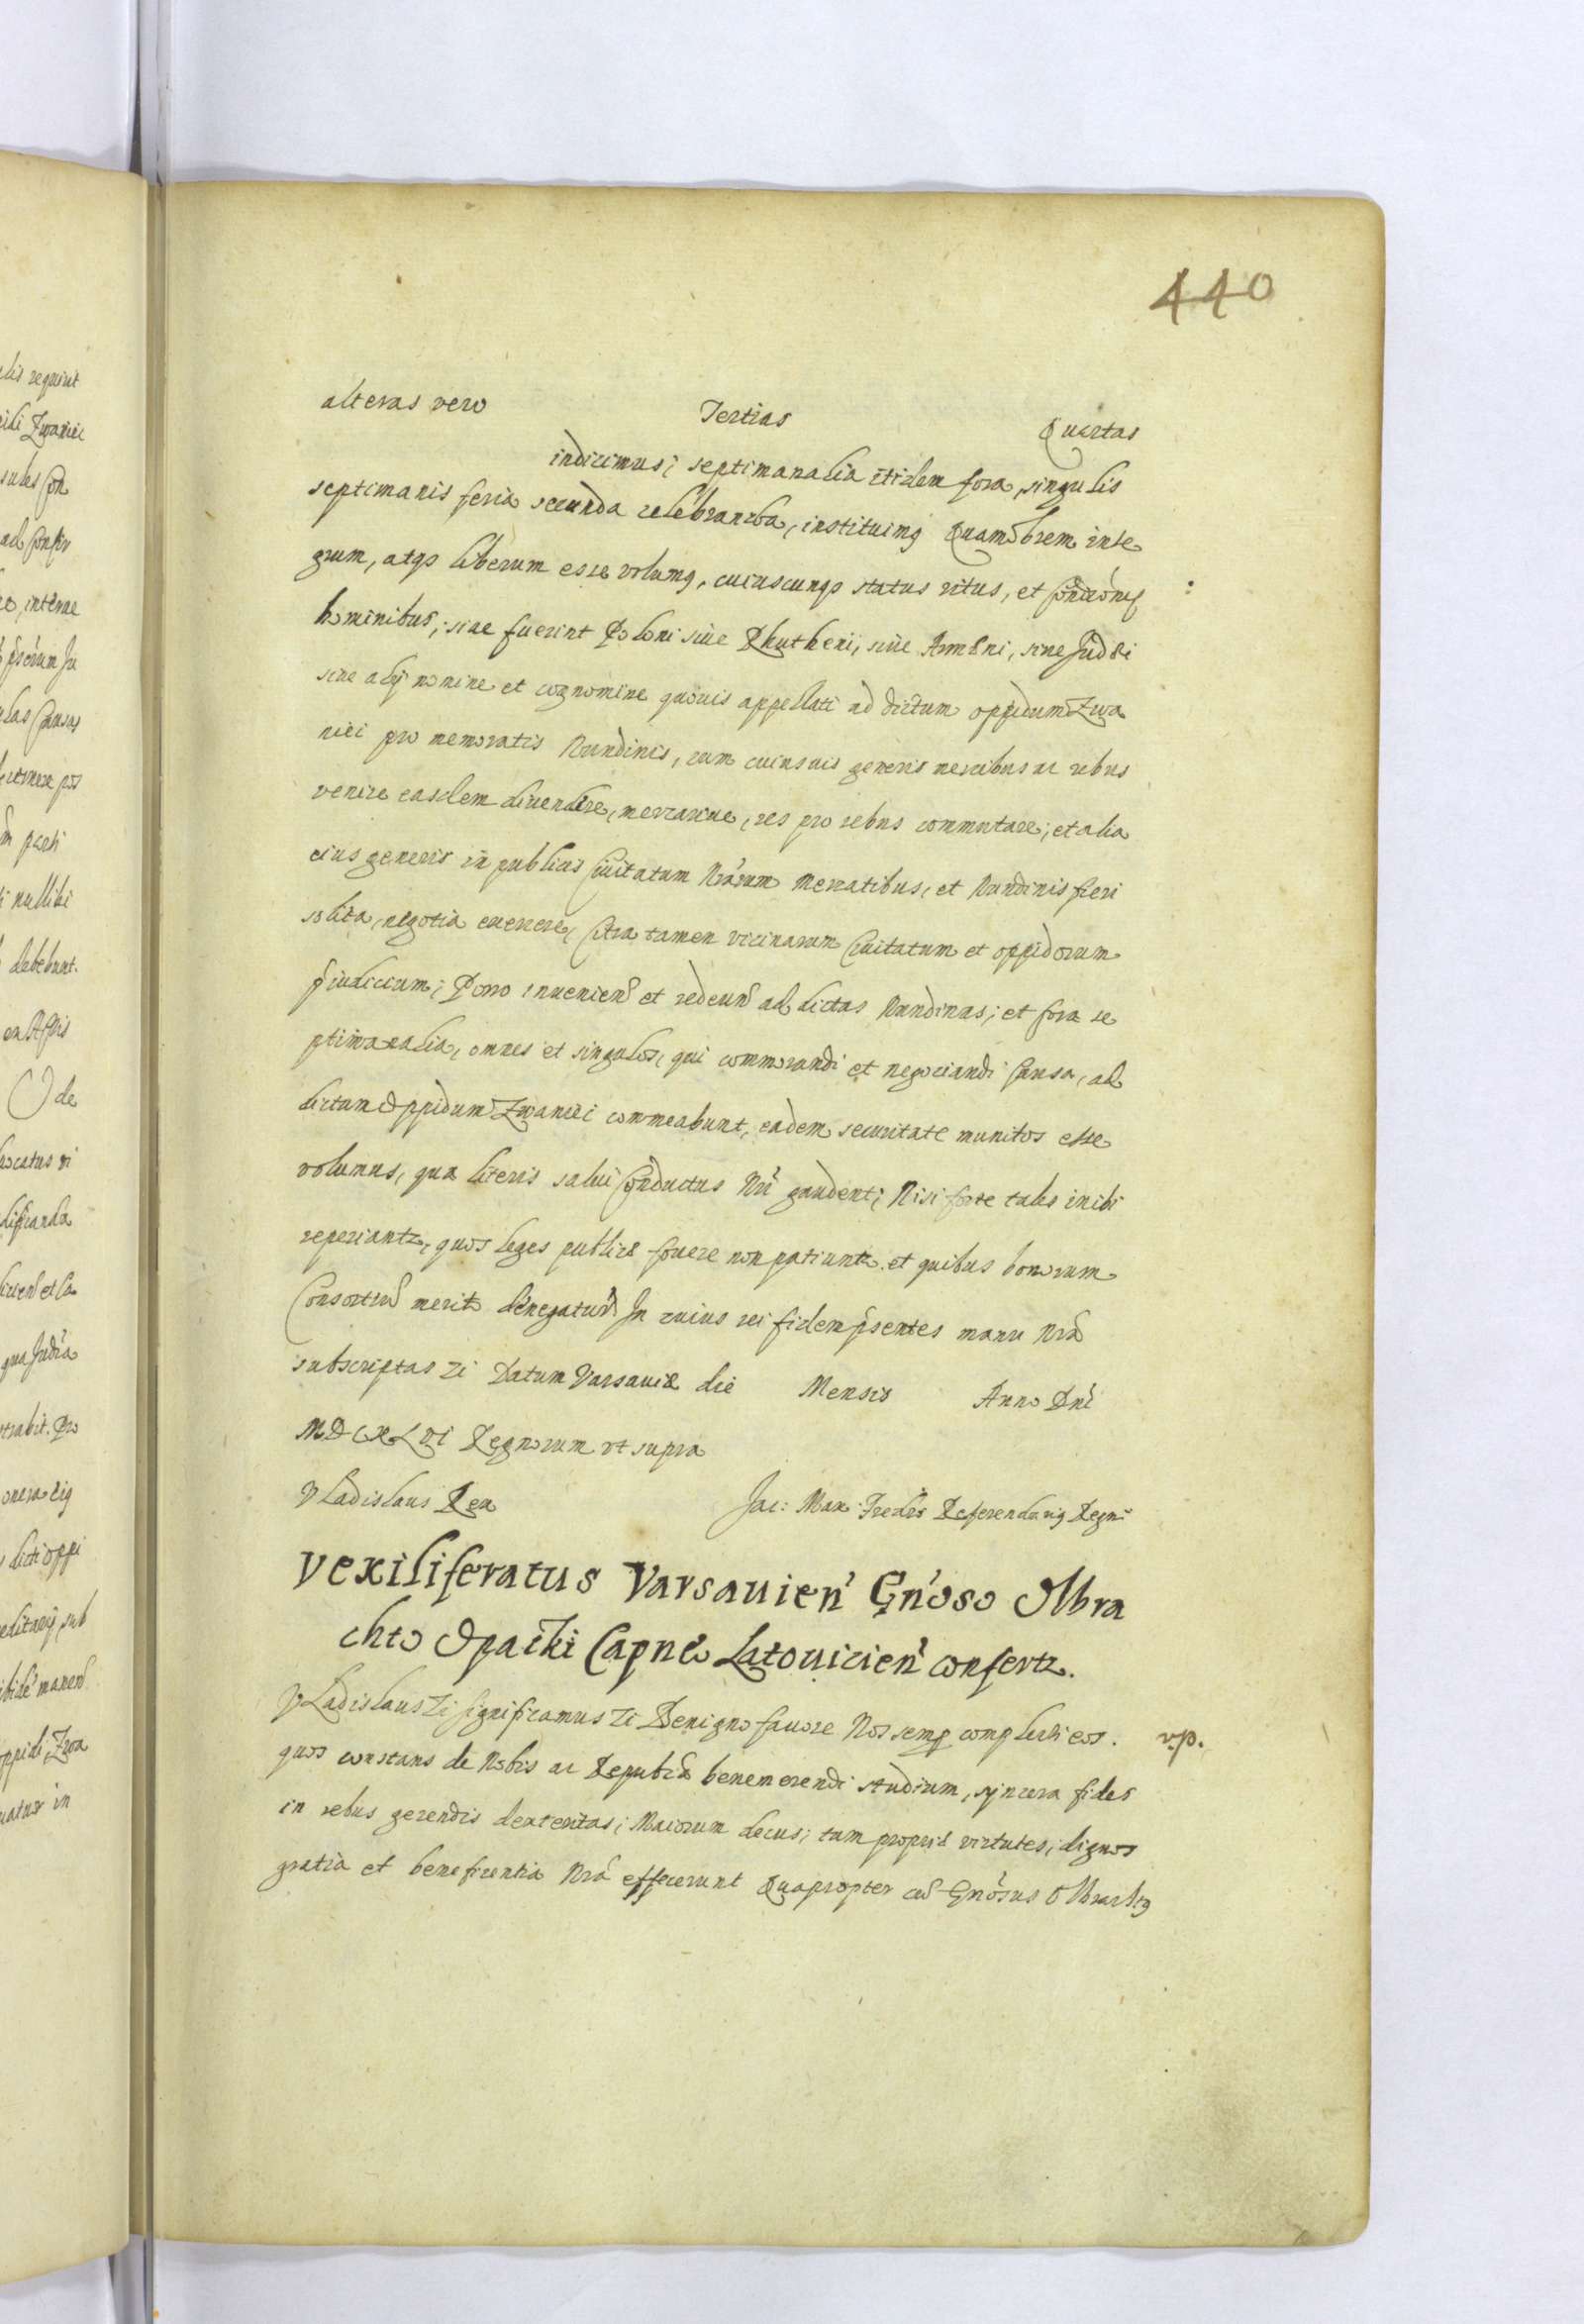 440
alteras vero Tertias Quartas
indicimus; septimanalia itidem fora, singulis
septimanis feria secunda celebranda, instituimq Quamobrem inte
grum, atqs liberum esse volumq, cuiuscunqs status ritus, et condiconis
hominibus, siue fuerint Poloni siue Rhutheni, siue Armeni, siue Judæi
siue alÿ nomine et cognomine quouis appellati ad dictum oppidum Zwa
niec pro memoratis Nundinis, cum cuiusuis generis mercibus ac rebus
venire easdem diuendere, mercarine, res pro rebus commutare; et alia
eius generis in publicis Ciuitatum Nrarum Mercatibus, et Nundinis fieri
solita, negotia exercere, Citra tamen vicinarum Ciuitatum et oppidorum
piudicium; Porro inueniend et redeund ad dictas Nundinas; et fora se
ptimanalia, omnes et singulos, qui commorandi et negociandi Causa, ad
dictum Oppidum Zwaniec commeabunt, eadem securitate munitos esse
volumus, qua literis salui Conductus Nri gaudent; Nisi forte tales inibi
reperiantr, quos leges publicæ fouere non patiuntr et quibus bonorum
Consortiu merito denegatur In cuius rei fidem psentes manu Nra
subscriptas Zi Datum Varsauiæ die Mensis Anno Dni
MDCXLVI Regnorum vt supra
Vladislaus Rex Jac: Max: Fredro Referendariq Regni
Vexiliferatus Varsauien Gnoso Olbra
chto Opacki Capneo Latouicien confertr.
Vladislaus Zi significamus Zi Benigno fauore Nos semp complecti eos. v.p.
quos constans de Nobis ac Republica benemerendi studium, syncera fides
in rebus gerendis dexteritas; Maiorum decus; tum propriæ virtutes; dignos
gratia et beneficentia Nra effecerunt Quapropter cu Gnosus Olbrachtq